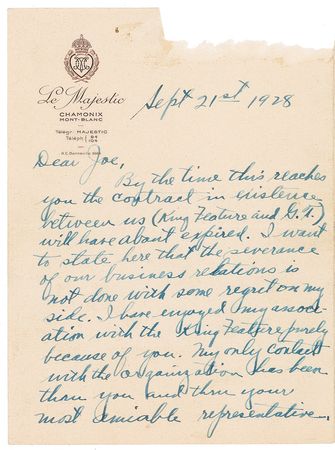 Le Majestic
CHAMONIX
MONT-BLANC
Télégr MAJESTIC
Téléph 84
104
R.C. Bonneville
Sept 21st 1928
Dear Joe,
By the time this reaches
you the contract in existence
between us (King Feature and G.T.)
will have about expired. I want
to state here that the severance
of our business relations is
not done with some regret on my
side. I have enjoyed my associ-
ation with the King Feature purely
because of you. My only contact
with the organization has been
thru you and thru your
most amiable representative.